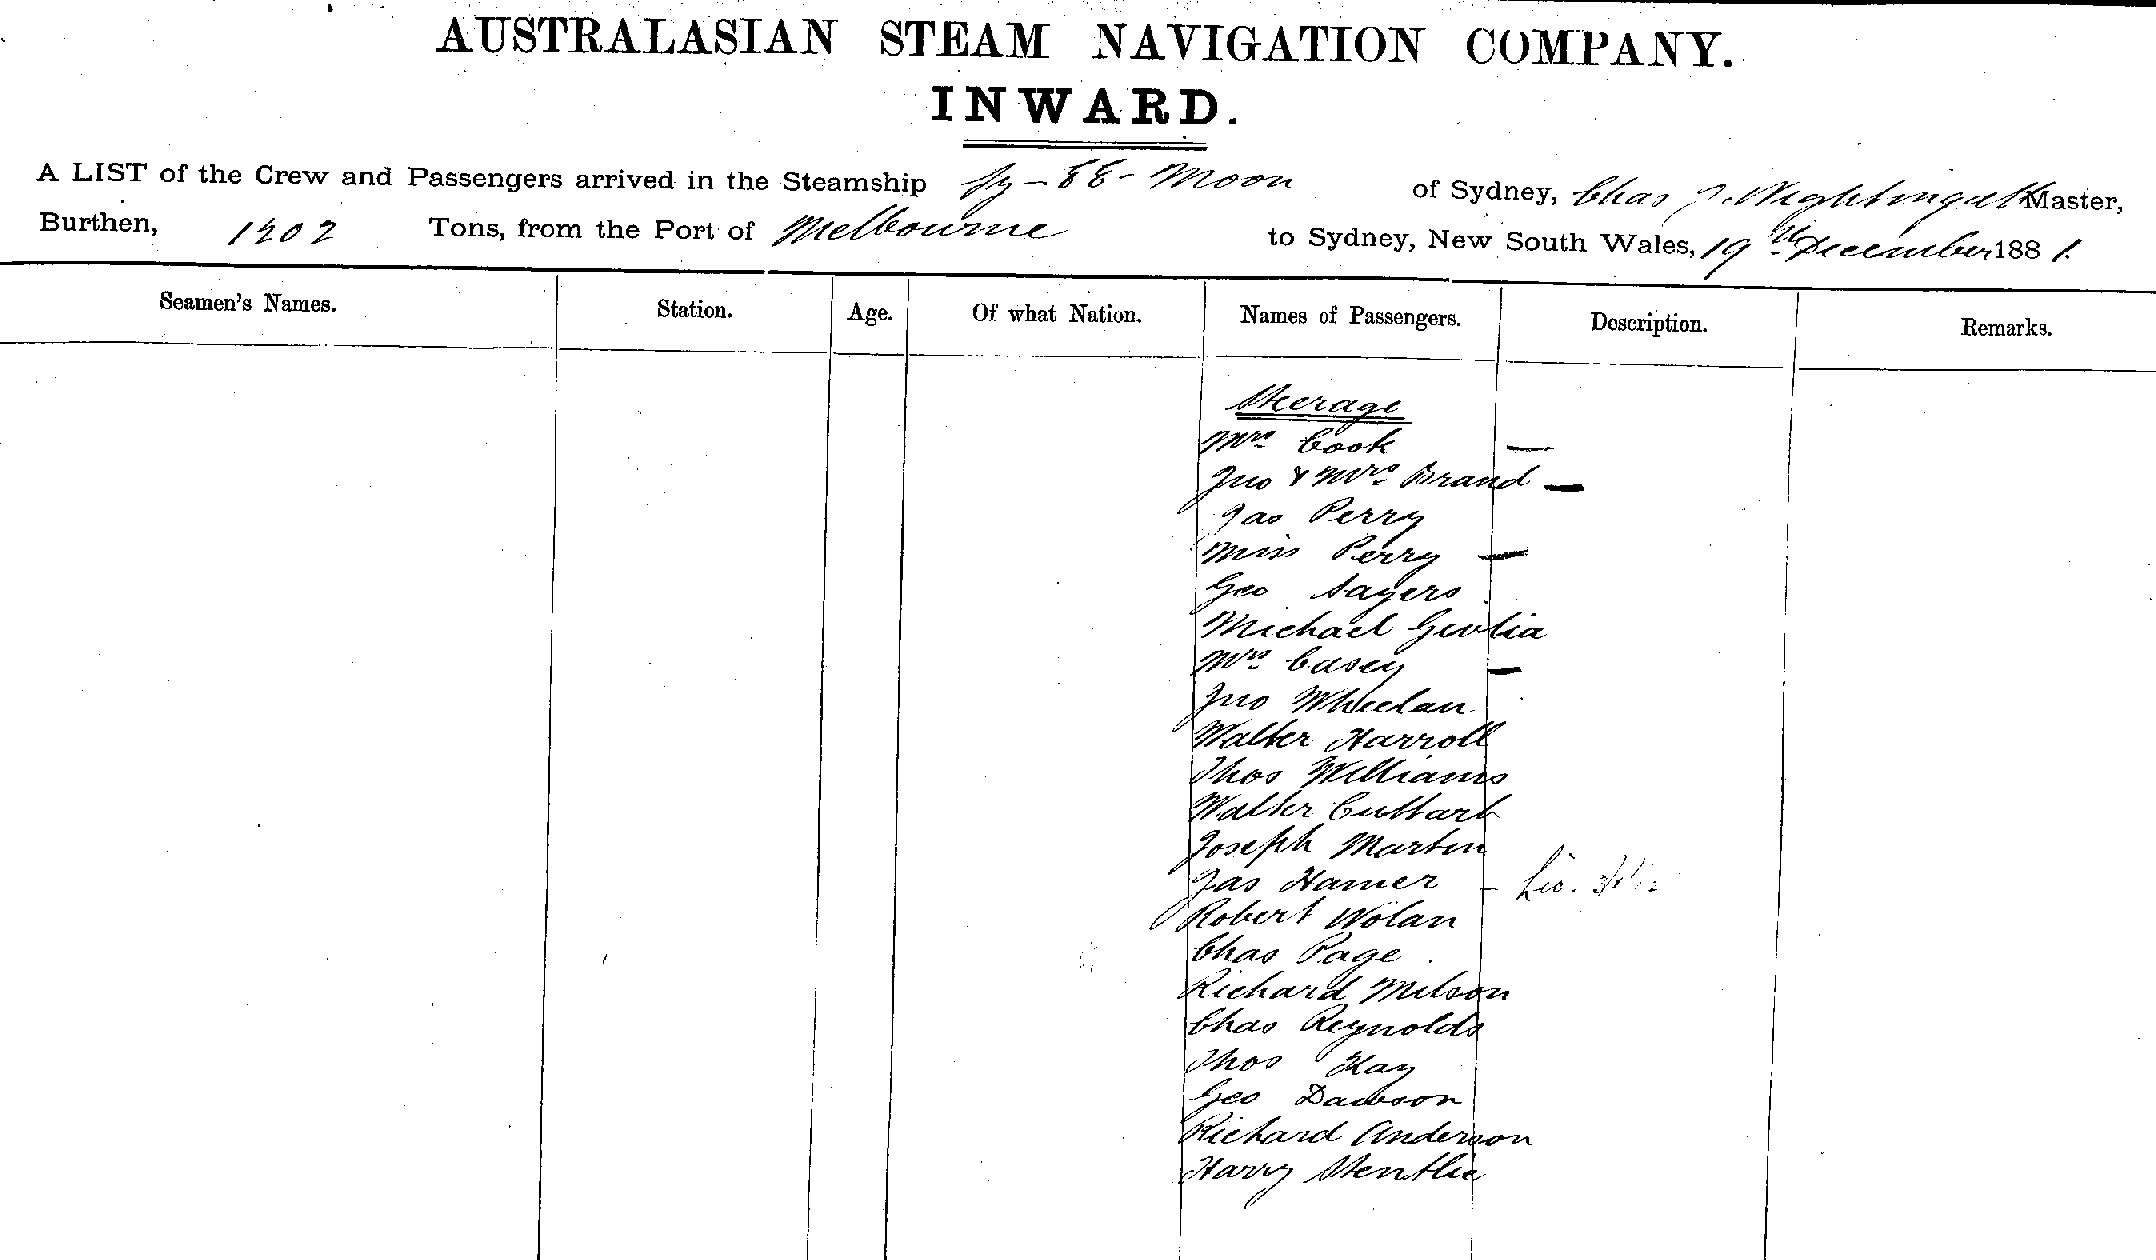 AUSTRALASIAN STEAM NAVIGATION COMPANY.
INWARD.
A LIST of the Crew and Passengers arrived in the Steamship Ly-ee-Moon of Sydney, Chas Nightingale Master,
Burthen, 1202 Tons, from the Port of Melbourne to Sydney, New South Wales, 19th December 1881.
Seamen's Names. Station. Age. Of what Nation. Names of Passengers. Description. Remarks.
Steerage
Mrs Cook —
Jno & Mrs Brand —
Jas Perry
Miss Perry —
Geo Sayers
Michael
Mrs Casey —
Jno Wheelan
Walter Harroll
Thos Williams
Walter
Joseph Martin
Jas Hamer -
Robert Nolan
Chas Page
Richard Milson
Chas Reynolds
Thos Hay
Geo Dawson
Richard Anderson
Harry